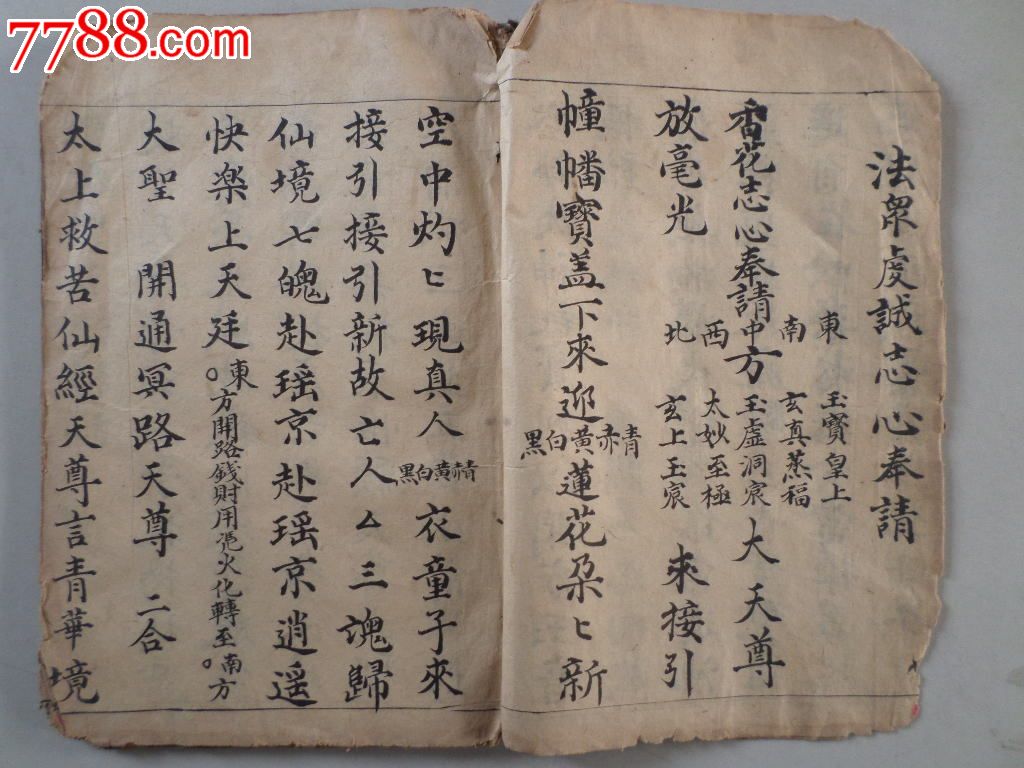 7788.com
法眾虔誠志心奉請
東 玉寶皇上
南 玄真萬福
香花志心奉請中方玉虛洞宸大天尊
西 太妙至極
北 玄上玉宸
放毫光 來接引
幢幡寶盖下來迎青赤黃白黑蓮花朶匕新
空中灼匕現真人青赤黃白黑衣童子來
接引接引新故亡人厶三魂歸
仙境七魄赴瑶京赴瑶京逍遥
快楽上天廷○東方開路錢財用凴火化轉至○南方
大聖 開通冥路天尊 二合
太上救苦仙經天尊言青華境